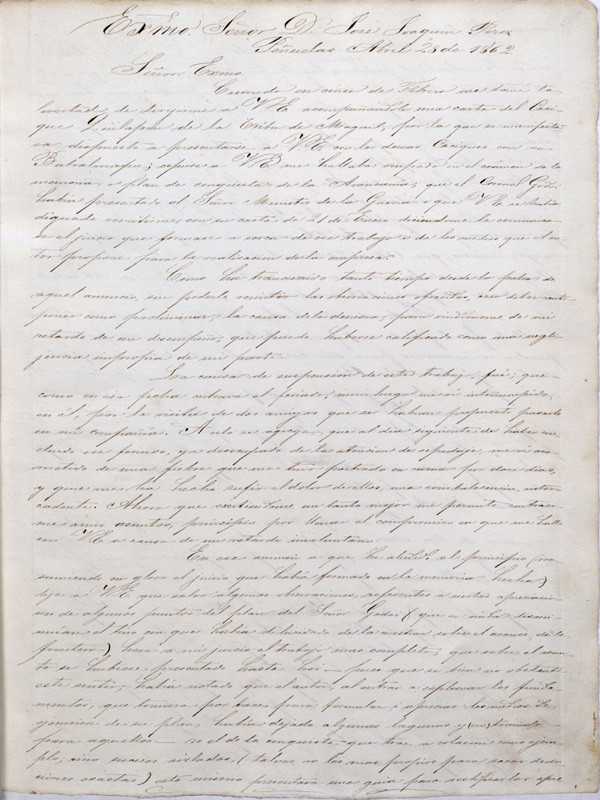 Exmo. Señor D. José Joaquin Perez
Peñuelas Abril 25 de 1862
Señor Exmo
Cuando en cinco de Febrero me tomé la
libertad de dirijirme a VE acompañandole una carta del Caci
que Quilapan de la tribu de por la que se manifesta
ba dispuesto a presentarse a VE con los demas Caciques con su
espuse a VE me hallaba ocupado en el exámen de la
memoria, o plan de conquista de la Araucania; que el Coronel Godoi
habia presentado al Señor Ministro de la Guerra i que VE se habia
dignado remitirme con su carta de 21 de Enero
el juicio que formase a cerca de ese trabajo i de los medios que el au
tor propone para la realizacion de la empresa.
Como ha transcurrido tanto tiempo desde la fecha de
aquel anuncio, sin poderle remitir las observaciones ofrecidas, creo deber ante
poner como preliminar, la causa de la demora; para sindicarme de mi
retardo de un desempeño, que puede haberse calificado como una negli
jencia impropia de mi parte.
La causa de suspension de este trabajo, fué; que
como en esa fecha entraba el feriado, mui luego me vi interrumpido
en él, por la visita de dos amigos que se habian propuesto pasarlo
en mi compañia. A esto se agrega, que al dia siguiente de haber con
cluido ese feriado, ya desocupado de las atenciones de hospedaje, me vi aco
metido de una fiebre que me tuvo postrado en cama por doce dias,
y que me ha hecho sufrir el dolor de ellos, una convalecencia inter
cadente. Ahora que sintiendome un tanto mejor me permite contraer
me a mis asuntos, principio por llenar el compromiso en que me hallo
con VE a causa de un retardo involuntario.
En ese anuncio a que he aludido al principio (re
sumiendo en globo el juicio que habia formado en la memoria dicha)
dije a VE que salvo algunas observaciones, referentes a ciertas apreciacio
nes de algunos puntos del plan del Señor Godoi (que en nada desmi
nuian el tino con que habia dilucidado de la cuestion sobre el avance de la
frontera) era a mi juicio el trabajo mas completo; que sobre el asun
to se hubiese presentado hasta hoi — pues que si bien no obstante
este sentir, habia notado que el autor, al entrar a esplanar los funda
mentos, que tomara por base para formular i apreciar los medios de
ejecucion de su plan, habia dejado algunas lagunas y (en) tomando
para aquellos — no el de la conquista que trae a colacion como ejem
plo; sino sucesos aislados, (talvez no los mas propios para sacar deduc
ciones exactas) esto mismo prestara una guia para rectificar las apre